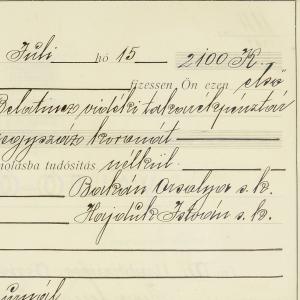 Juli hó 15 2100 K.
fizessen Ön ezen első
Belatincz vidéki takarékpénztár
egyszáz koronát
molásba tudósitás nélkül.
Bakán Orsolya s. k.
Hajdúk István s. k.